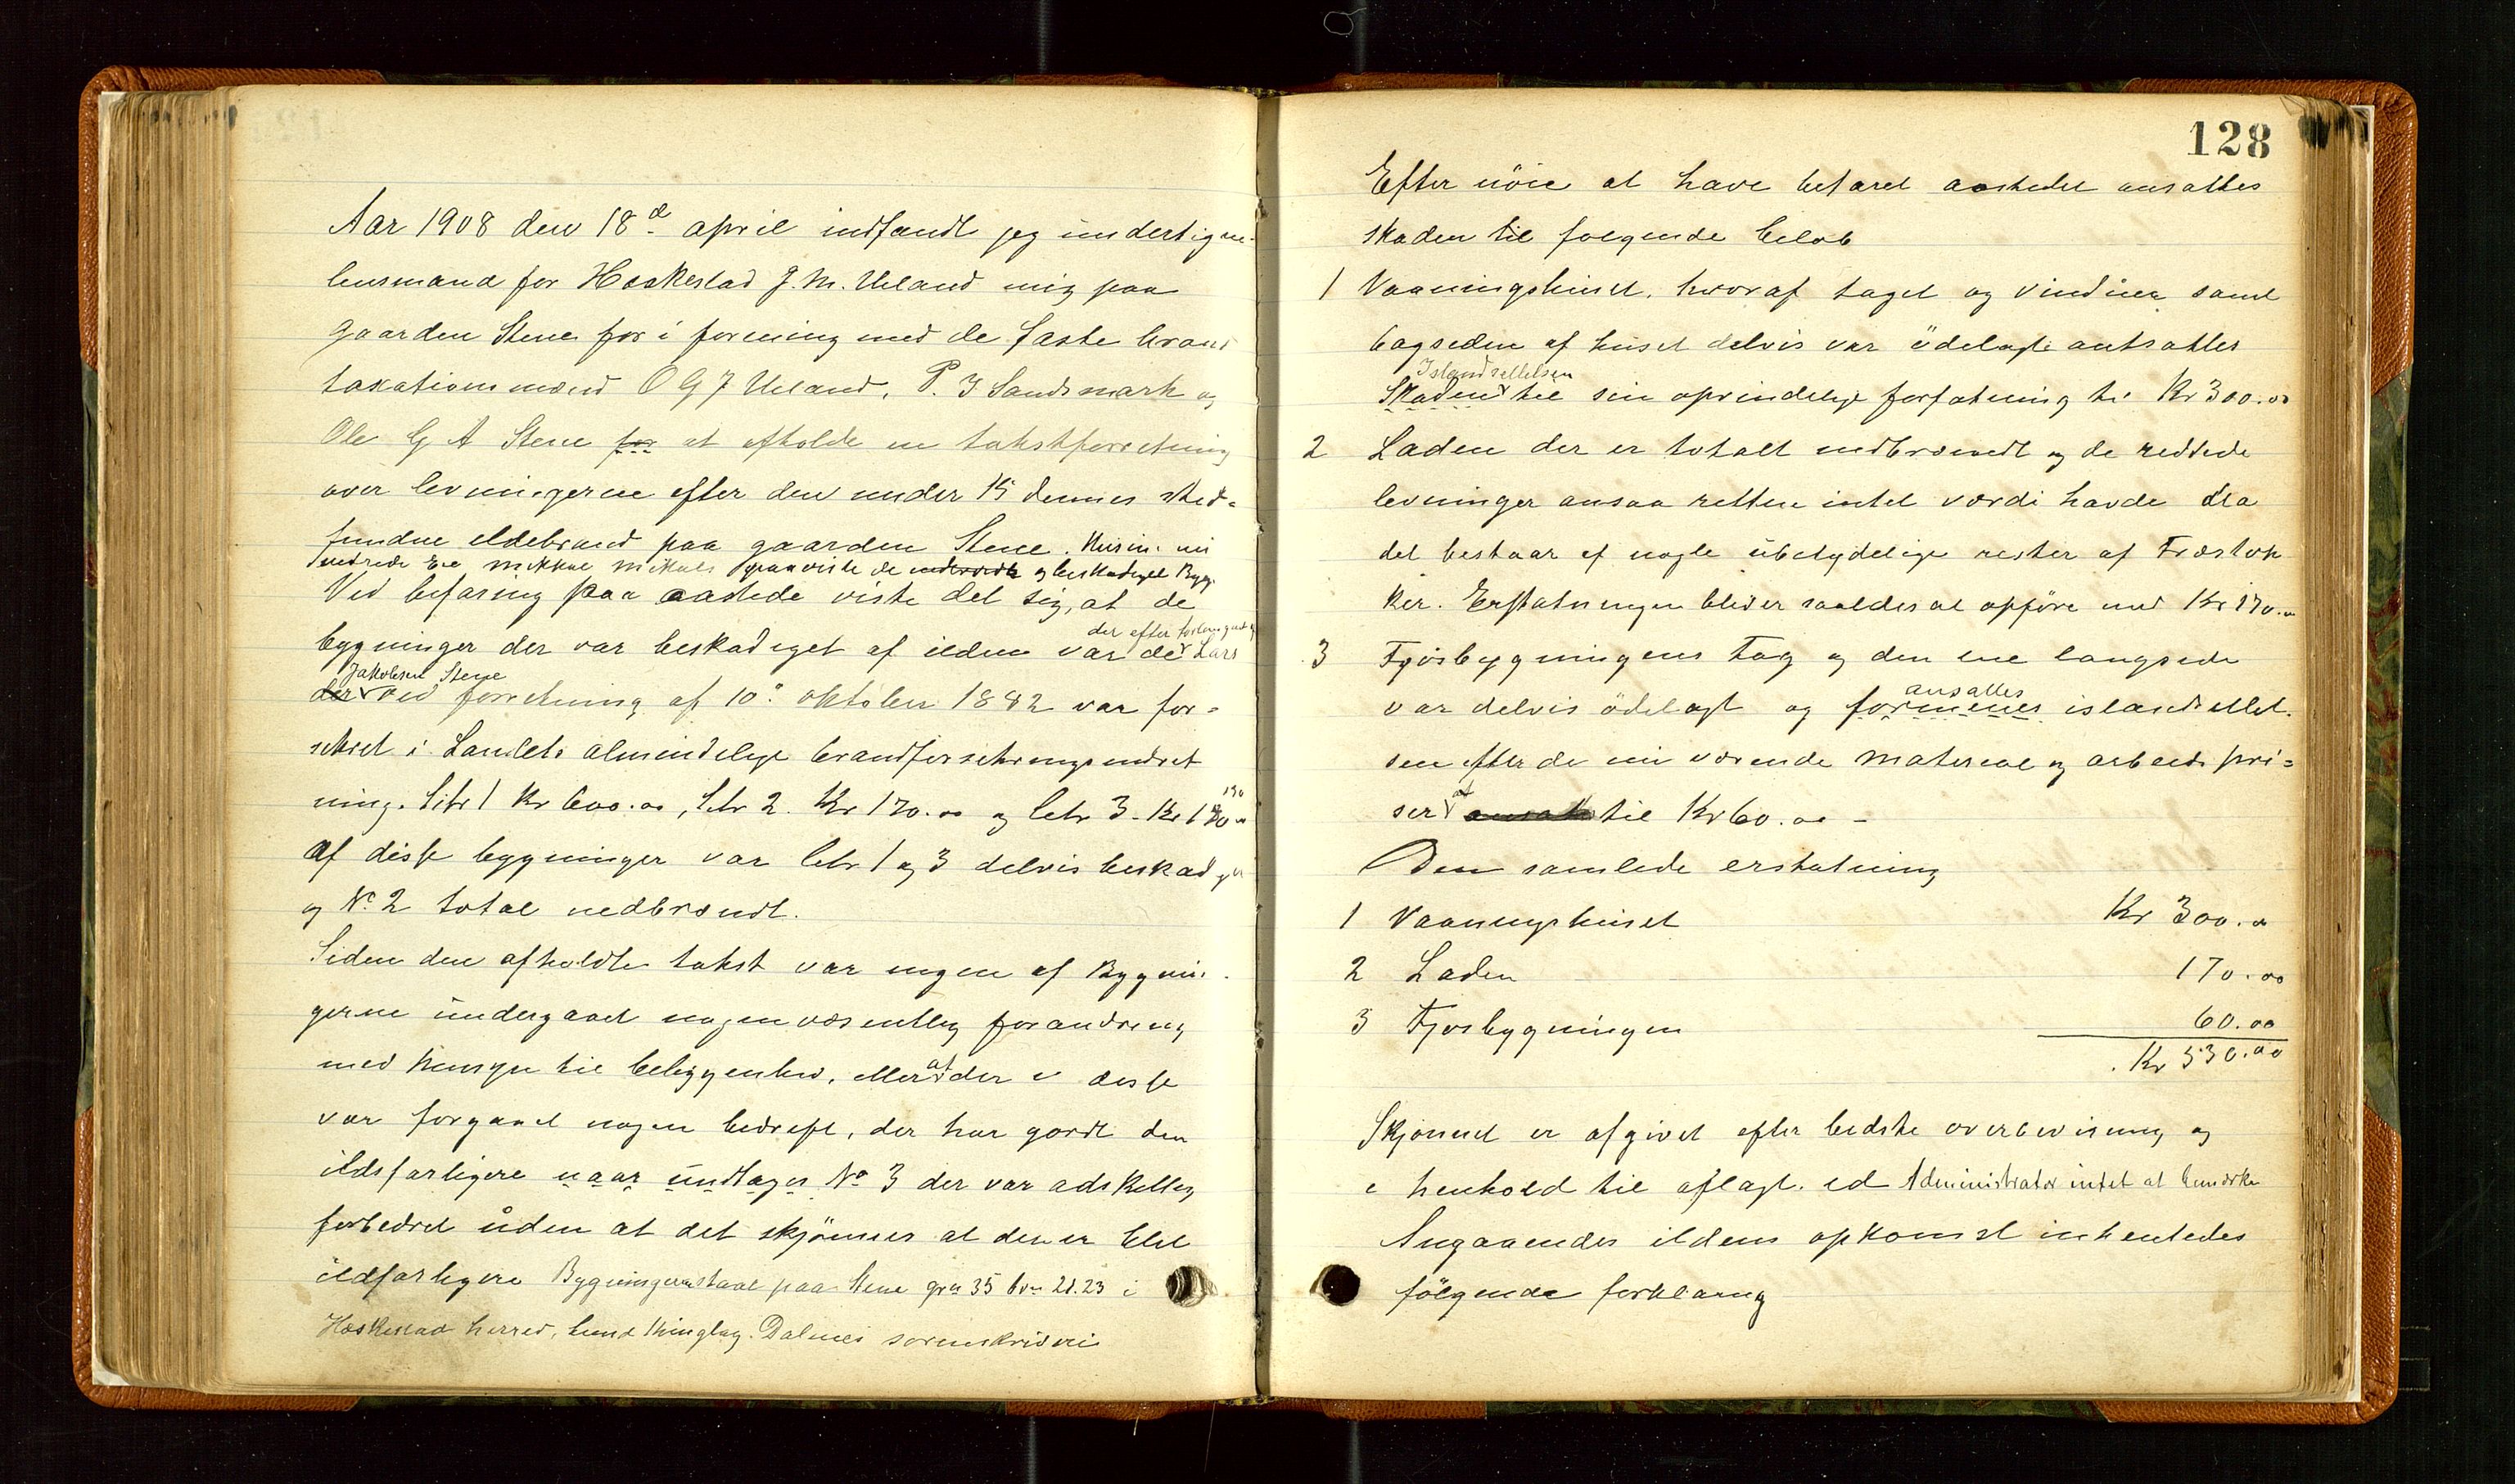 Aar 1908 den 18d april indfandt jeg undertegne-
lensmand for Heskestad J. M. Ueland mig paa
gaarden Stene for i forening med de faste brand
taxationsmænd O G J Ueland, P. J Sandsmark og
Ole G A Stene for at afholde en takstforretning
over levningerne efter den under 15 dennes sted-
fundne ildebrand paa gaarden Stene.
Mikkel paaviste de og beskadiget Byg.
Ved befaring paa aastede viste det sig, at de
der efter forlangende
bygninger der var beskadiget af ilden var de Lars
Jakobsen Stene
der ved forretning af 10de oktober 1882 var for-
sikret i Landets almindelige brandforsikringsindret
190
ning. Litr 1 Kr 600.00, Litr 2. Kr 170.00 og litr 3. Kr
af disse bygninger var litr 1 og 3 delvis beskadget
og No 2 total nedbrændt.
Siden den afholdte takst var ingen af Bygnin-
gerne undergaaet nogen væsentlig forandring
med hensyn til beliggenhed, eller at der i disse
var forgaaet nogen bedrift, der har gjordt den
ildsfarligere naar undtages No 3 der var adskillig
forbedret uden at det skjönnes at den er blet
ildfarligere Bygningerne staar paa Stene gno 35 bno 21.23 i
Heskestad herred, Lund thinglag. Dalenes sorenskriveri
128
Efter nöie at have befaret aastedet ansattes
skaden til følgende beløb
1 Vaaningshuset, hvoraf taget og vinduer samt
bagsiden af huset delvis var ödelagt antsattes
Istandsettelsen
Skaden til sin oprindelige forfatning til Kr 300.00
2 Laden der er totalt nedbrændt og de reddede
levninger ansaa retten intet værdi havde da
det bestaar af nogle ubetydelige rester af Træstok
ker. Erstatningen bliver saaledes at opföre med Kr 170.00
3 Fjösbygningens tag og den ene langside
ansattes
var delvis ödelagt og formenes istandsettel-
sen efter de nu værende materiale og arbeidspri-
ser til Kr 60.00 -
Den samlede erstatning
1 Vaaningshuset Kr 300.00
2 Laden 170.00
3 Fjosbygningen 60.00
Kr 530.00
Skjönnet er afgivet efter bedste overbevisning og
i henhold til aflagt ed Administrator intet at bemerke
Angaaendes ildens opkomst inhentedes
fölgende forklaring